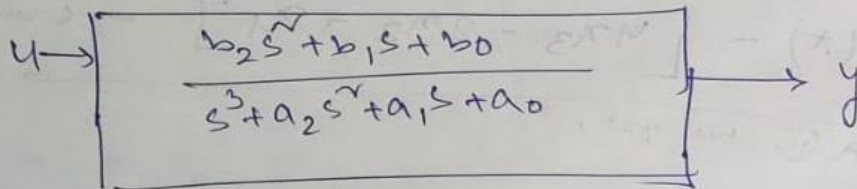 u → b₂s² + b₁s + b₀ → y
s³ + a₂s² + a₁s + a₀